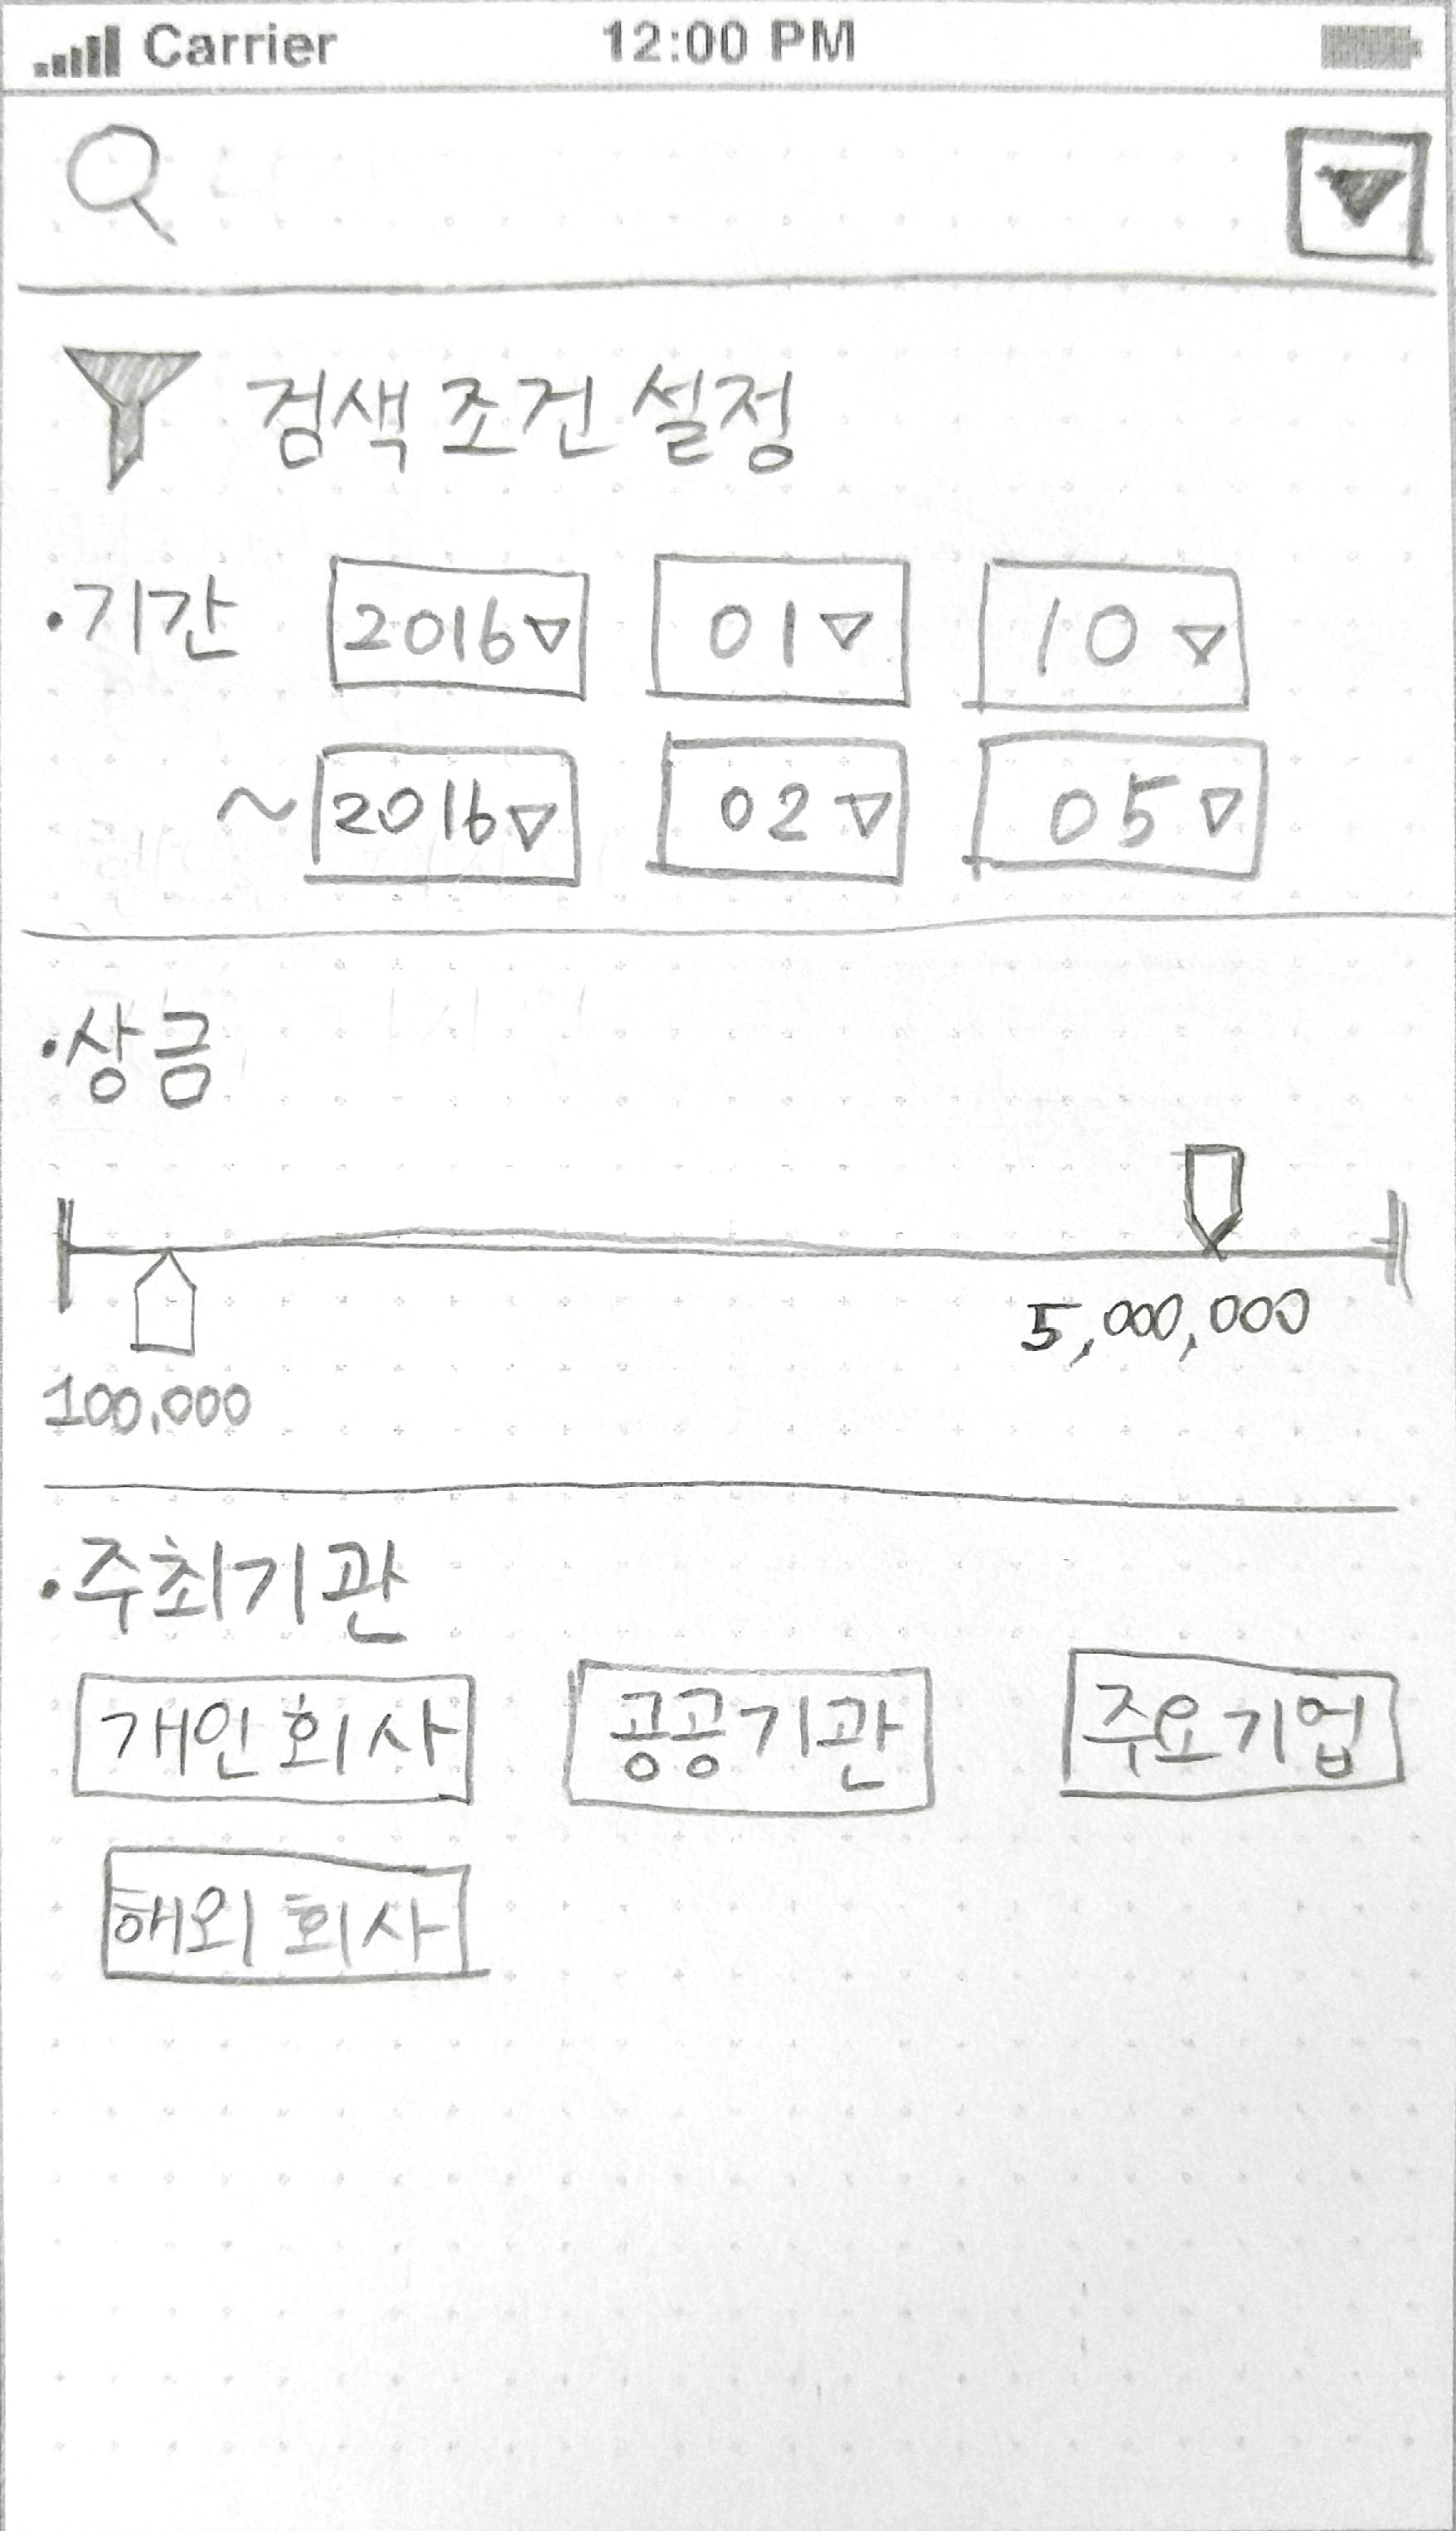 Carrier 12:00 PM
검색 조건 설정
·기간 2016 01 10
~ 2016 02 05
·상금
5,000,000
100,000
·주최기관
개인회사 공공기관 주요기업
해외회사